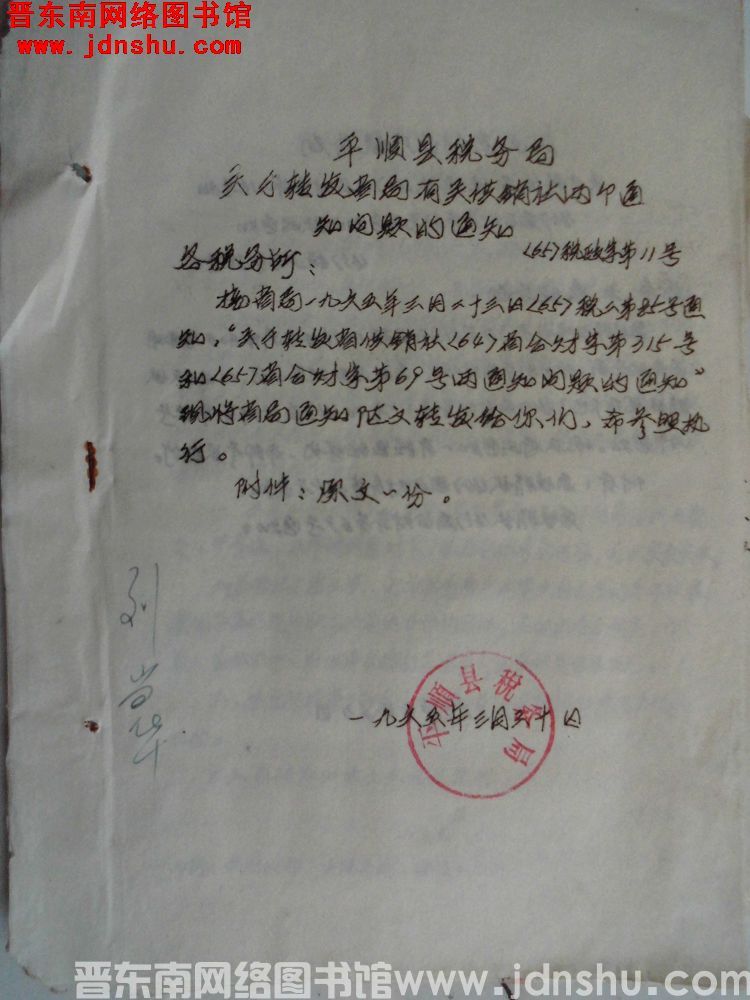 晋东南网络图书馆
www.jdnshu.com
平顺县税务局
关于转发省局有关供销社两个通
知问题的通知
<65>税政字第11号
各税务所：
按省局一九六五年三月二十三日<65>税二第85号通
知，“关于转发省供销社<64>省合财字第315号
和<65>省合财字第69号两通知问题的通知”
现将省局通知随文转发给你们，希参照执
行。
附件：原文一份。
一九六五年三月三十日
平顺县税务局
刘
晋东南网络图书馆www.jdnshu.com